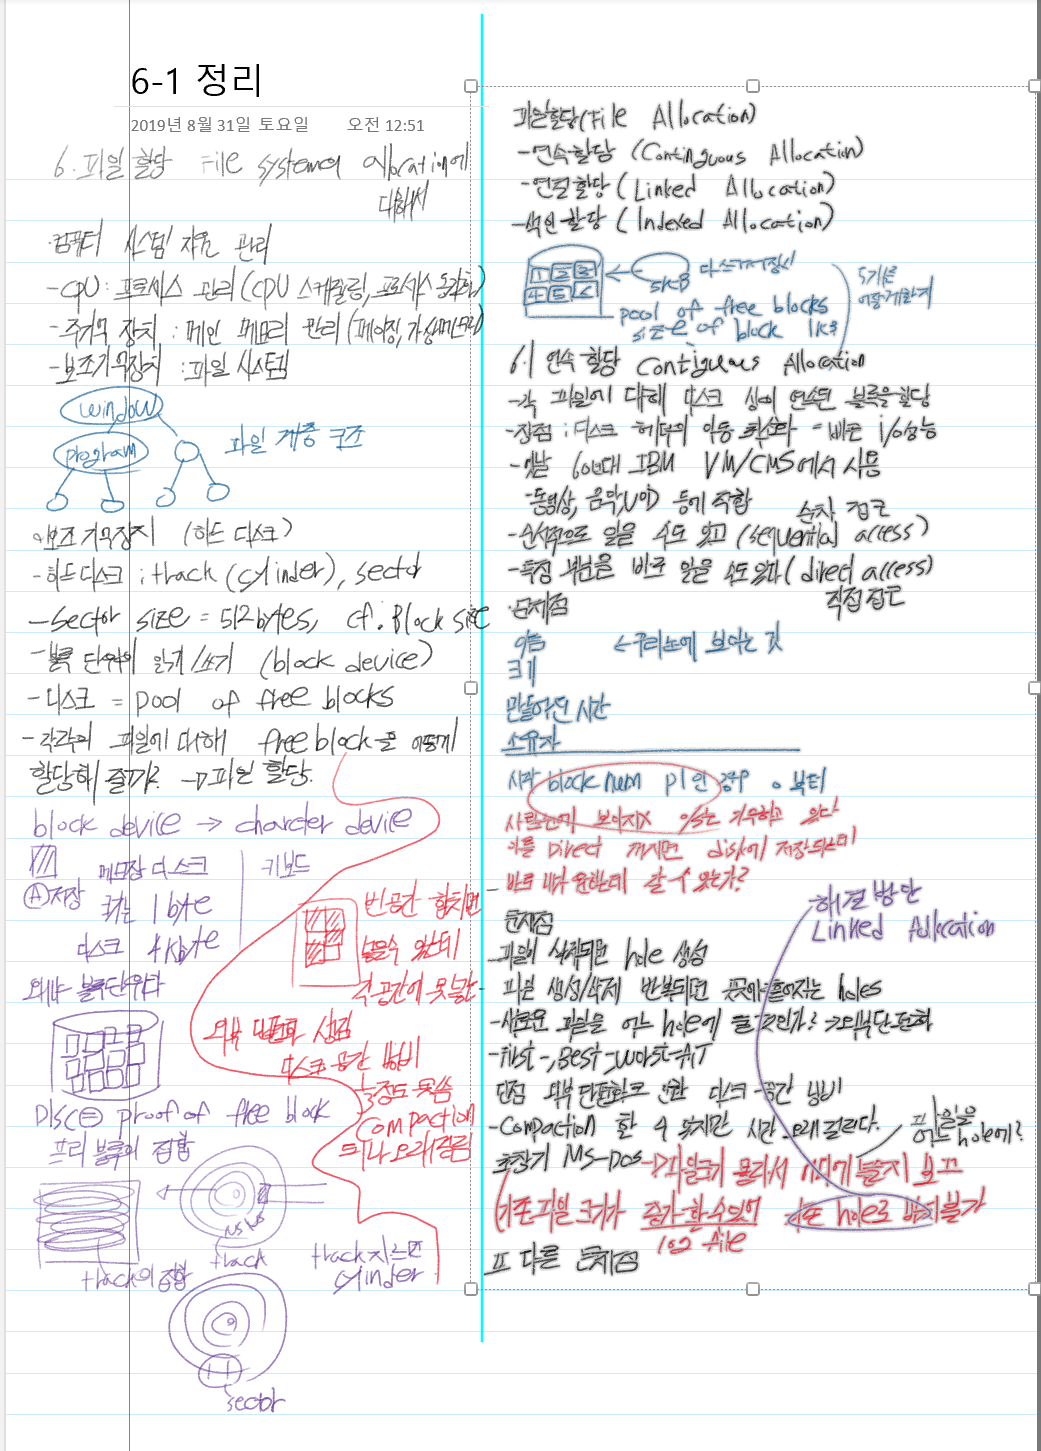 6-1 정리
2019년 8월 31일 토요일 오전 12:51
6. 파일 할당 File system의 allocation에
대해서
·컴퓨터 시스템 자원 관리
-CPU : 프로세스 관리(CPU 스케줄링, 프로세스 동기화)
-주기억 장치 : 메인 메모리 관리(페이징, 가상메모리)
-보조기억장치 : 파일 시스템
window
program
파일 계층 구조
·보조기억장치 (하드 디스크)
-하드디스크 : track (cylinder), sector
-Sector size = 512bytes, cf. Block size
-블록 단위의 읽기/쓰기 (block device)
-디스크 = pool of free blocks
-각각의 파일에 대해 free block을 어떻게
할당해 줄까? → 파일 할당.
block device → charcter device
메모장 디스크 키보드
Ⓐ저장 크기는 1byte
디스크 4kbyte
왜냐 블록단위다
빈공간 합치면
넣을수 있는데
각공간에 못넣는
외부 단편화 생김
디스크 공간 낭비
⅓정도 못씀
Compaction
크나 오래걸림
DISC = proof of free block
프리 블록의 집합
track
track의 집합
track 자르면
cylinder
sector
파일할당(File Allocation)
-연속할당 (Continguous Allocation)
-연결 할당 (Linked Allocation)
-색인 할당 (Indexed Allocation)
1 2 3
4 5 6
← 5KB 디스크저장시
pool of free blocks
size of block 1KB
5개를
어떻게할지
6.1 연속 할당 Contiguous Allocation
-각 파일에 대해 디스크 상의 연속된 블록을 할당
-장점 : 디스크 헤더의 이동 최소화 = 빠른 i/o성능
-옛날 60년대 IBM VM/CMS에서 사용
-동영상, 음악, VOD 등에 적합
순차 접근
-순서적으로 읽을 수도 있고 (sequential access)
-특정 부분을 바로 읽을 수도 있다 (direct access)
직접 접근
·문제점
이름 ←우리눈에 보이는 것
크기
만들어진 시간
소유자
시작 block num p1인 경우 0 부터
사람눈에 보이지X O/S는 기억하고 있다!
이를 Direct 꺼시면 disk에 저장되는데
바로 내가 원하는데 갈 수 있는가?
해결방안
Linked Allocation
문제점
-파일이 삭제되면 hole 생성
-파일 생성/삭제 반복되면 곳곳에 흩어지는 holes
-새로운 파일을 어느 hole에 둘 것인가? →외부단편화
-First-, Best-, worst-fit
단점 외부 단편화로 인한 디스크 공간 낭비
-Compaction 할 수 있지만 시간 오래 걸린다.
파일을
어느 hole에?
초창기 MS-DOS →파일크기 몰라서
(기존파일 크기가 증가할 수있어
log file
또 다른 문제점